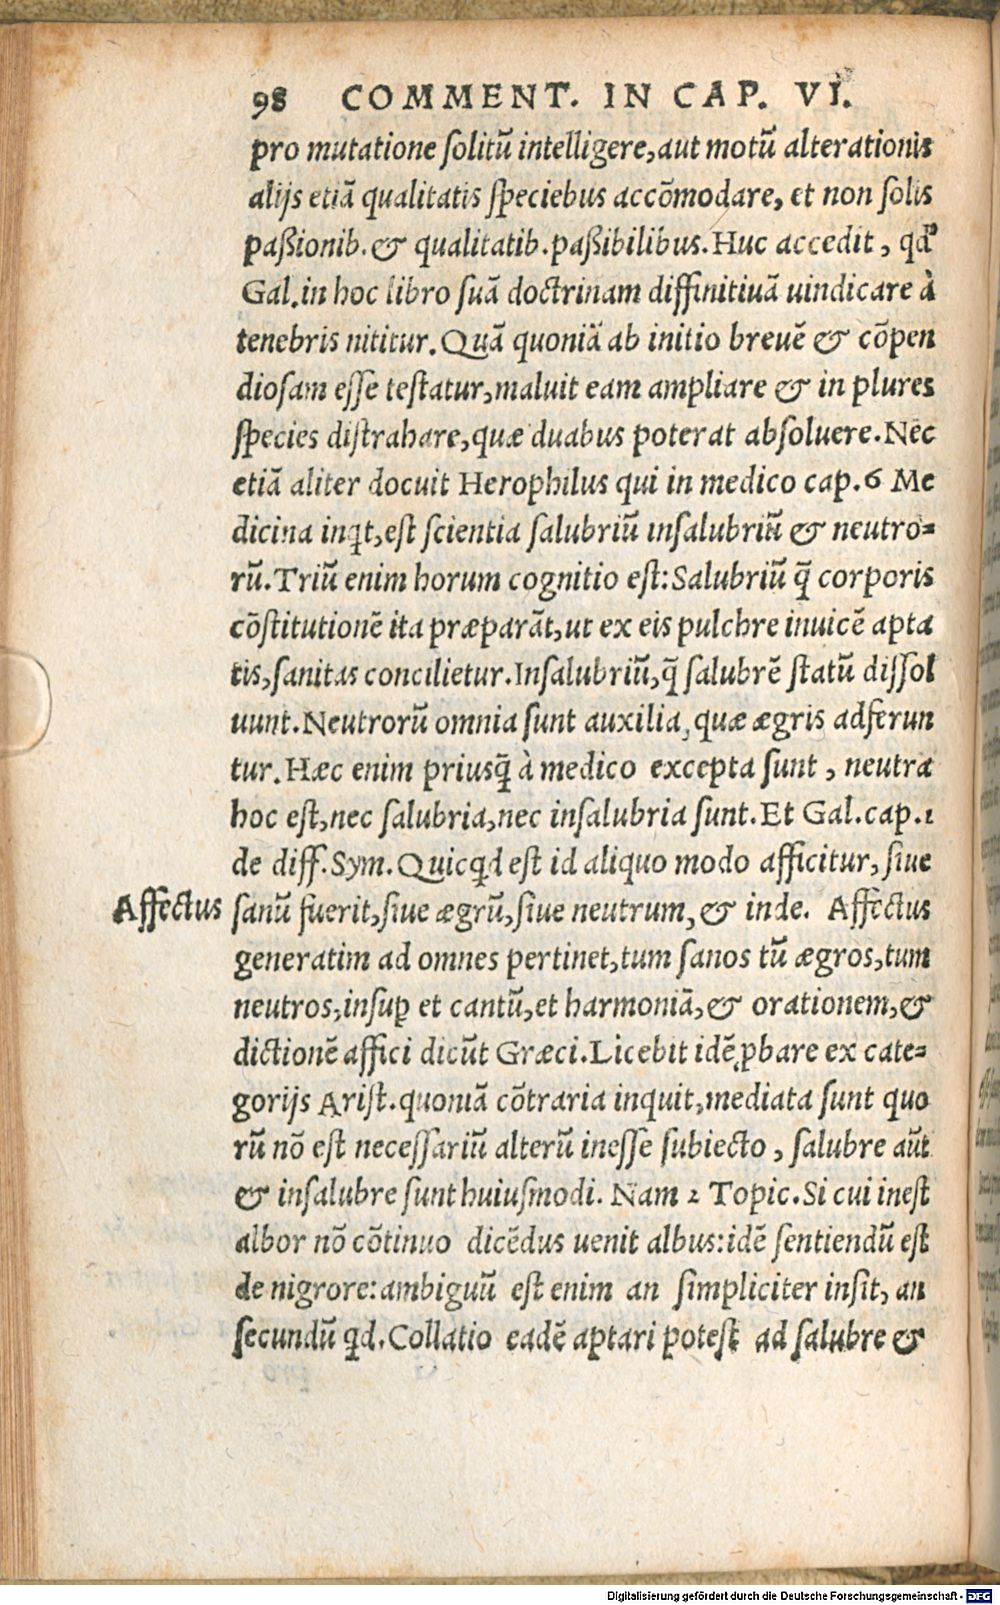 98 COMMENT. IN CAP. VI.
pro mutatione ſolitū intelligere, aut motū alterationis
alijs etiā qualitatis ſpeciebus accōmodare, et non ſolis
paßionib. & qualitatib. paßibilibus. Huc accedit, qd'
Gal. in hoc libro ſuā doctrinam diffinitiuā uindicare à
tenebris nititur. Quā quoniā ab initio breuē & cōpen
dioſam eſſe teſtatur, maluit eam ampliare & in plures
ſpecies diſtrahare, quæ duabus poterat abſoluere. Nec
etiā aliter docuit Herophilus qui in medico cap. 6 Me
dicina inq̇t, eſt ſcientia ſalubriū inſalubriū & neutro=
rū. Triū enim horum cognitio eſt: Salubriū q̄ corporis
cōſtitutionē ita præparāt, ut ex eis pulchre inuicē apta
tis, ſanitas concilietur. Inſalubriū, q̄ ſalubrē ſtatū diſſol
uunt. Neutrorū omnia ſunt auxilia, quæ ægris adferun
tur. Hæc enim priusq̄ à medico excepta ſunt, neutra
hoc eſt, nec ſalubria, nec inſalubria ſunt. Et Gal. cap. 1
de diff. Sym. Quicq̇d eſt id aliquo modo afficitur, ſiue
Affectus ſanū fuerit, ſiue ægrū, ſiue neutrum, & inde. Affectus
generatim ad omnes pertinet, tum ſanos tū ægros, tum
neutros, inſuꝑ et cantū, et harmoniā, & orationem, &
dictionē affici dicūt Græci. Licebit idē ꝓbare ex cate=
gorijs Ariſt. quoniā cōtraria inquit, mediata ſunt quo
rū nō eſt neceſſariū alterū ineſſe ſubiecto, ſalubre aūt
& inſalubre ſunt huiuſmodi. Nam 2 Topic. Si cui ineſt
albor nō cōtinuo dicēdus uenit albus: idē ſentiendū eſt
de nigrore: ambiguū eſt enim an ſimpliciter inſit, an
ſecundū q̇d. Collatio eadē aptari poteſt ad ſalubre &
Digitalisierung gefördert durch die Deutsche Forschungsgemeinschaft - DFG